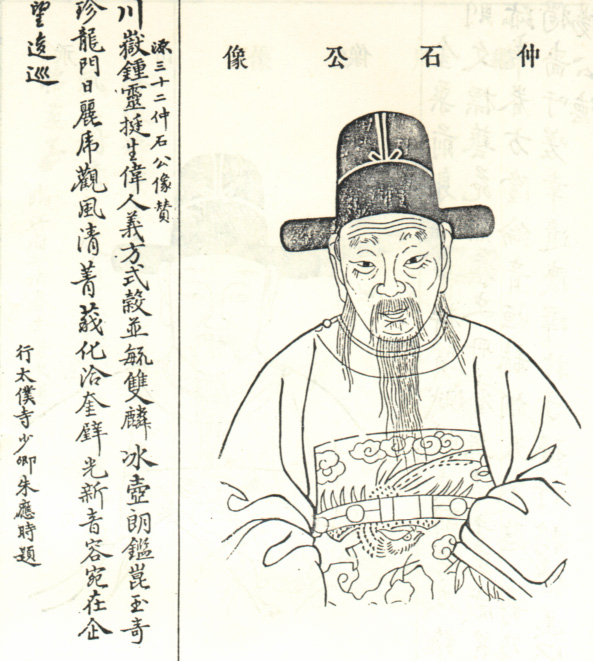 仲石公像
源三十二仲石公像贊
川嶽鍾靈挺生偉人義方式穀並毓雙麟冰壺朗鑑崑玉奇
珍龍門日麗席觀風清菁莪化洽奎壁光新音容宛在企
望逡巡
行太僕寺少卿朱應時題